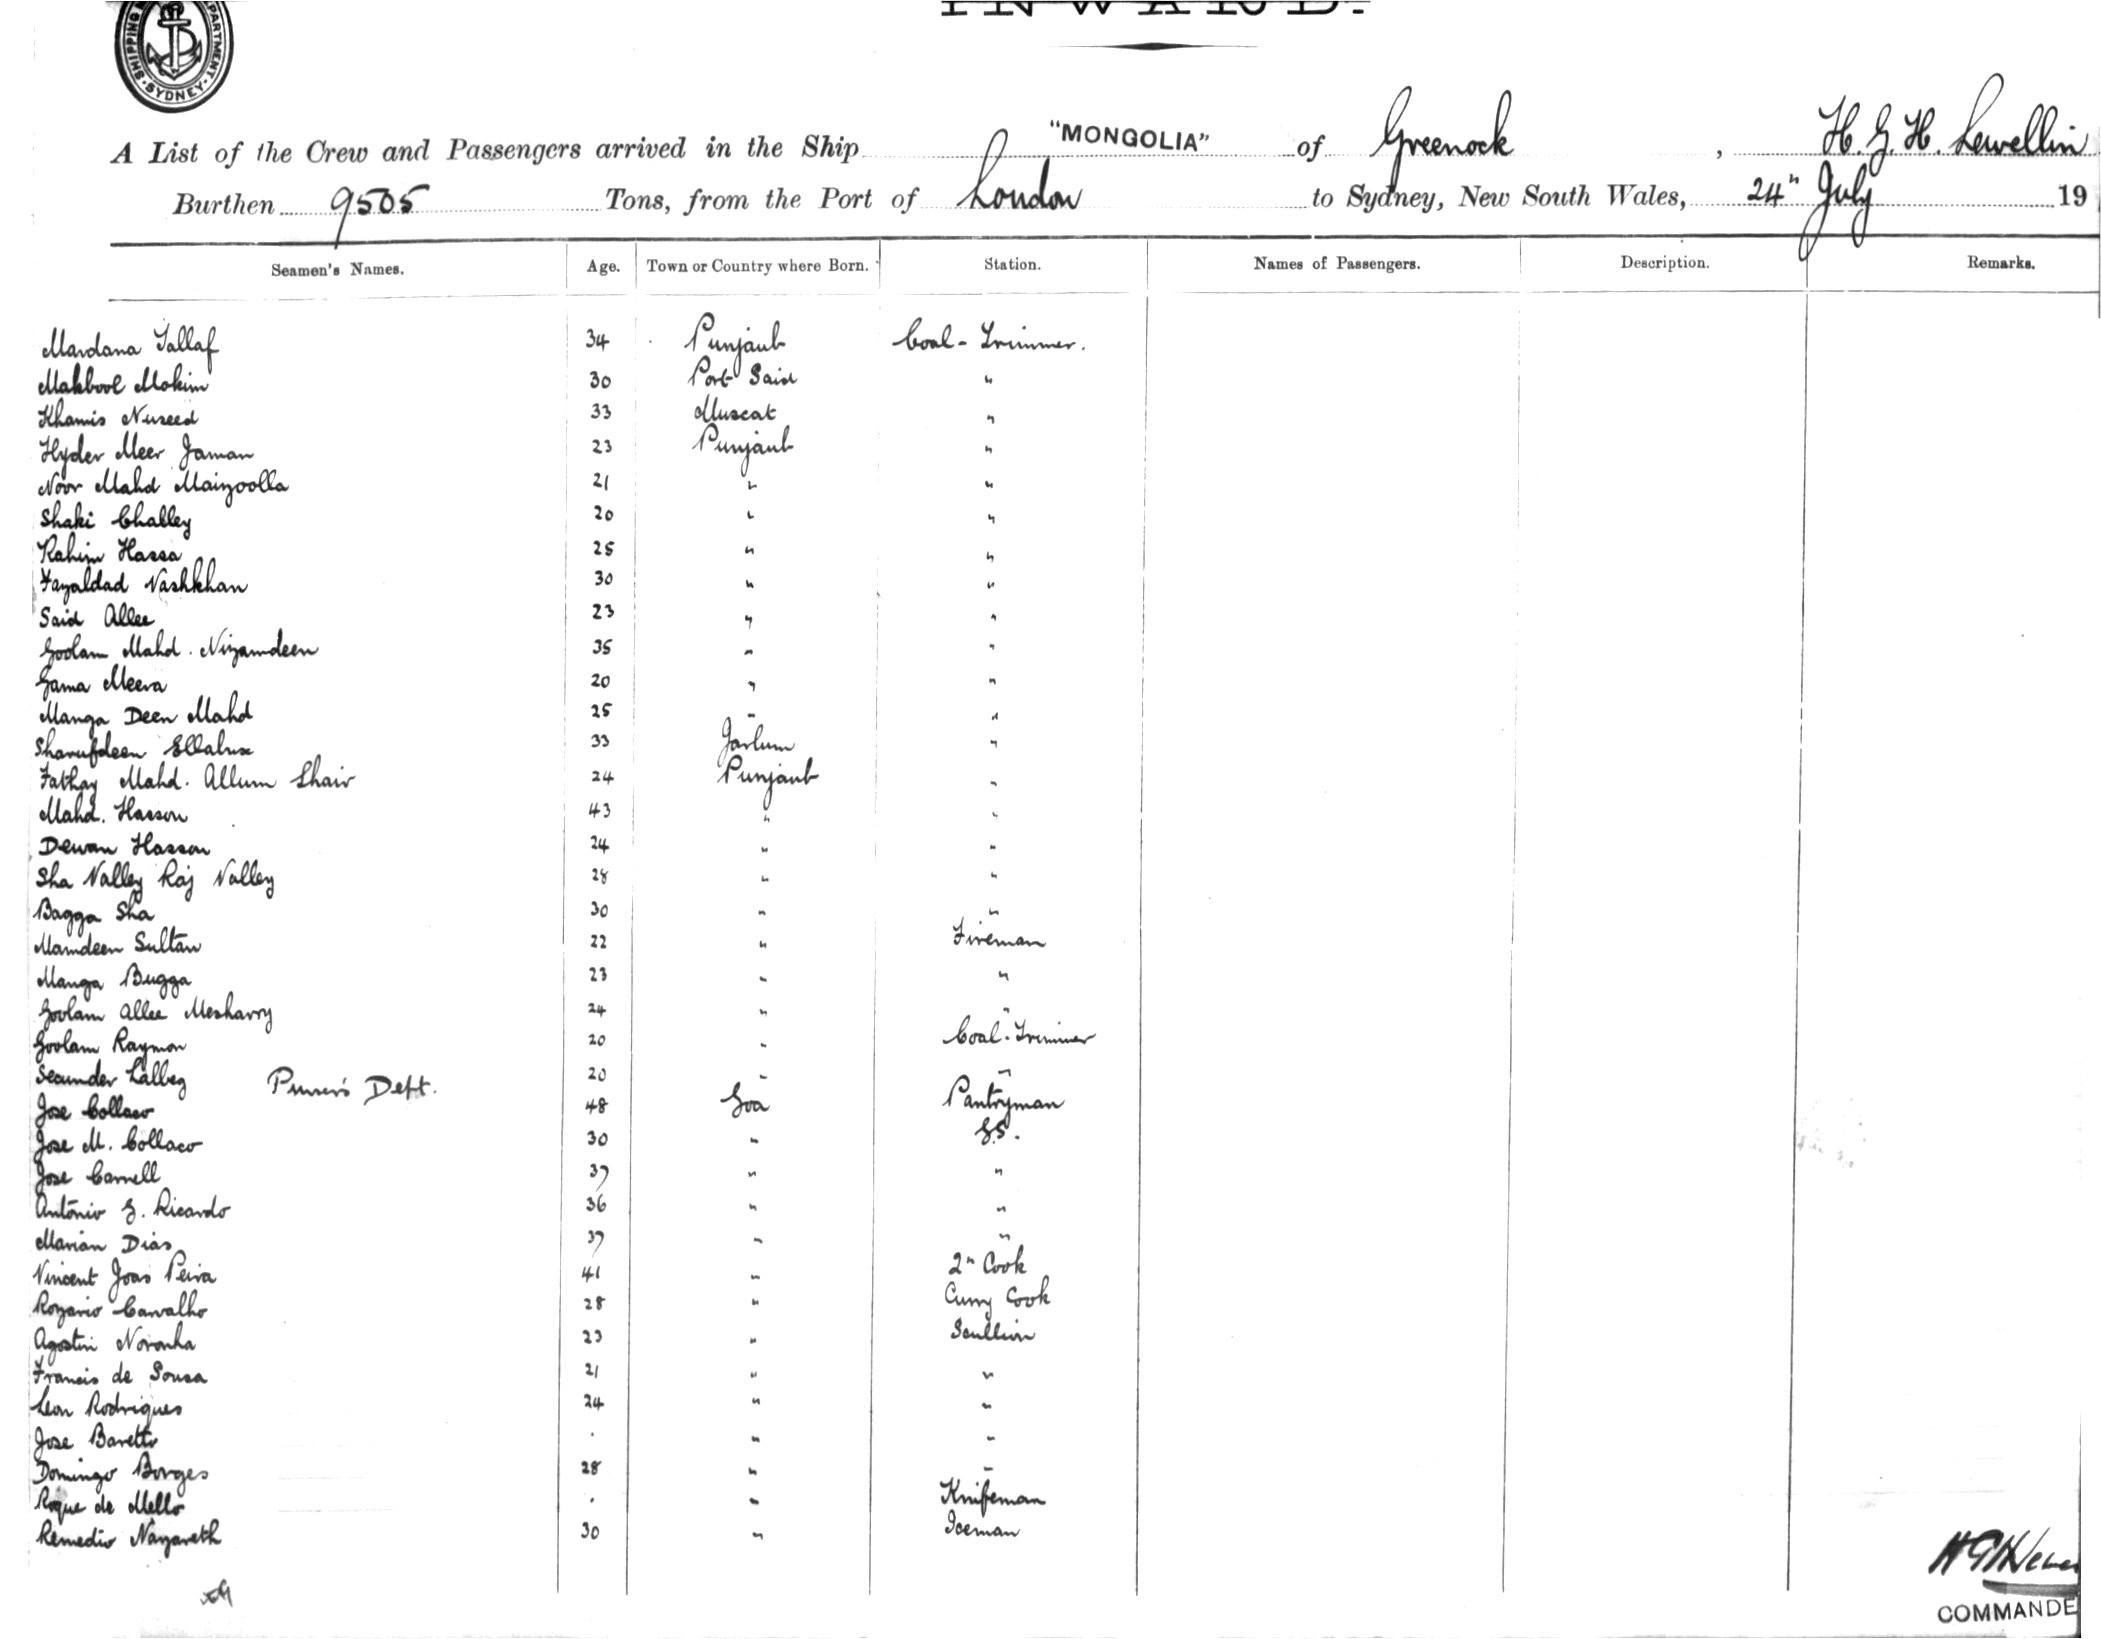 INWARD.
SHIPPING DEPARTMENT. SYDNEY
A List of the Crew and Passengers arrived in the Ship "MONGOLIA" of Greenock, H. G. H. Lewellin
Burthen 9505 Tons, from the Port of London to Sydney, New South Wales, 24" July 19
Seamen's Names. Age. Town or Country where Born. Station. Names of Passengers. Description. Remarks.
Mardana Tallaf 34 Punjaub Coal-Trimmer.
Makbool Mokim 30 Port Said "
Khamis Nuseed 33 Muscat "
Hyder Meer Jaman 23 Punjaub "
Noor Mahd Maizoolla 21 " "
Shaki Challey 20 " "
Rahim Hassa 25 " "
Fazaldad Nashkhan 30 " "
Said Allee 23 " "
Goolam Mahd. Nizamdeen 35 " "
Gama Meera 20 " "
Manga Deen Mahd 25 " "
Sharufdeen Ellabux 33 Jarlum "
Fathay Mahd. Allum Shair 24 Punjaub "
Mahd. Hasson 43 " "
Dewan Hassan 24 " "
Sha Nalley Raj Nalley 28 " "
Bagga Sha 30 " "
Mamdeen Sultan 22 " Fireman
Manga Bugga 23 " "
Goolam Allee Mesharry 24 " "
Goolam Raymon 20 " Coal-Trimmer
Secunder Lalbeg 20 " "
Purser's Dept.
Jose Collaco 48 Goa Pantryman
Jose M. Collaco 30 " G.S.
Jose Carnell 37 " "
Antonio G. Ricardo 36 " "
Marian Dias 37 " "
Vincent Joao Peira 41 " 2" Cook
Rozario Carvalho 28 " Curry Cook
Agostin Noronha 23 " Scullion
Francis de Sousa 21 " "
Leon Rodrigues 24 " "
Jose Baretto . " "
Domingo Borges 28 " "
Roque de Mello . " Knifeman
Remedio Nazareth 30 " Iceman
HGHLewe
COMMANDE